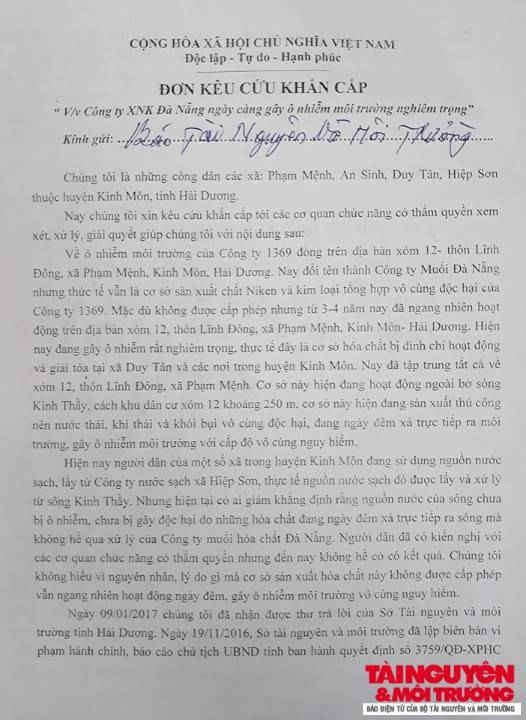 CỘNG HÒA XÃ HỘI CHỦ NGHĨA VIỆT NAM
Độc lập - Tự do - Hạnh phúc
ĐƠN KÊU CỨU KHẨN CẤP
“ V/v Công ty XNK Đà Nẵng ngày càng gây ô nhiễm môi trường nghiêm trọng”
Kính gửi: Báo Tài Nguyên Và Môi Trường
Chúng tôi là những công dân các xã: Phạm Mệnh, An Sinh, Duy Tân, Hiệp Sơn
thuộc huyện Kinh Môn, tỉnh Hải Dương.
Nay chúng tôi xin kêu cứu khẩn cấp tới các cơ quan chức năng có thẩm quyền xem
xét, xử lý, giải quyết giúp chúng tôi với nội dung sau:
Về ô nhiễm môi trường của Công ty 1369 đóng trên địa bàn xóm 12- thôn Lĩnh
Đông, xã Phạm Mệnh, Kinh Môn, Hải Dương. Nay đổi tên thành Công ty Muối Đà Nẵng
nhưng thực tế vẫn là cơ sở sản xuất chất Niken và kim loại tổng hợp vô cùng độc hại của
Công ty 1369. Mặc dù không được cấp phép nhưng từ 3-4 năm nay đã ngang nhiên hoạt
động trên địa bàn xóm 12, thôn Lĩnh Đông, xã Phạm Mệnh, Kinh Môn- Hải Dương. Hiện
nay đang gây ô nhiễm rất nghiêm trọng, thực tế đây là cơ sở hóa chất bị đình chỉ hoạt động
và giải tỏa tại xã Duy Tân và các nơi trong huyện Kinh Môn. Nay đã tập trung tất cả về
xóm 12, thôn Lĩnh Đông, xã Phạm Mệnh. Cơ sở này hiện đang hoạt động ngoài bờ sông
Kinh Thầy, cách khu dân cư xóm 12 khoảng 250 m, cơ sở này hiện đang sản xuất thủ công
nên nước thải, khí thải và khói bụi vô cùng độc hại, đang ngày đêm xả trực tiếp ra môi
trường, gây ô nhiễm môi trường với cấp độ vô cùng nguy hiểm.
Hiện nay người dân của một số xã trong huyện Kinh Môn đang sử dụng nguồn nước
sạch, lấy từ Công ty nước sạch xã Hiệp Sơn, thực tế nguồn nước sạch đó được lấy và xử lý
từ sông Kinh Thầy. Nhưng hiện tại có ai giám khẳng định rằng nguồn nước của sông chưa
bị ô nhiễm, chưa bị gây độc hại do những hóa chất đang ngày đêm xả trực tiếp ra sông mà
không hề qua xử lý của Công ty muối hóa chất Đà Nẵng. Người dân đã có kiến nghị với
các cơ quan chức năng có thẩm quyền nhưng đến nay không hề có có kết quả. Chúng tôi
không hiểu vì nguyên nhân, lý do gì mà cơ sở sản xuất hóa chất này không được cấp phép
vẫn ngang nhiên hoạt động ngày đêm, gây ô nhiễm môi trường vô cùng nguy hiểm.
Ngày 09/01/2017 chúng tôi đã nhận được thư trả lời của Sở Tài nguyên và môi
trường tỉnh Hải Dương. Ngày 19/11/2016, Sở tài nguyên và môi trường đã lập biên bản vi
phạm hành chính, báo cáo chủ tịch UBND tỉnh ban hành quyết định số 3759/QĐ-XPHC
TÀI NGUYÊN
& MÔI TRƯỜNG
BÁO ĐIỆN TỬ CỦA BỘ TÀI NGUYÊN VÀ MÔI TRƯỜNG